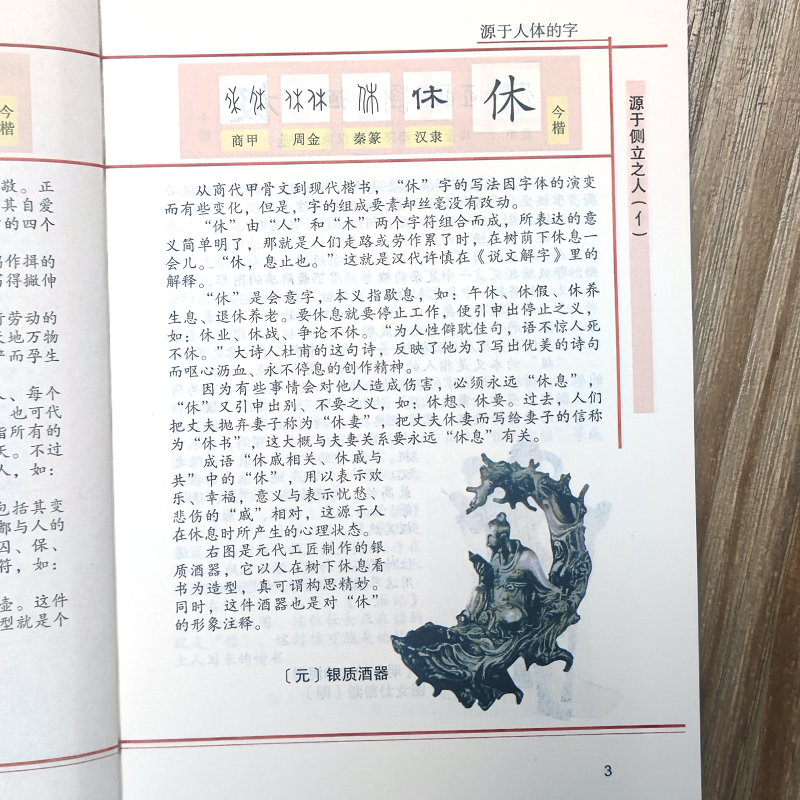 今
楷
敬。正
其自爱
的四个
作揖的
得撇伸
劳动的
天地万物
而孕生
、每个
也可代
指所有的
天。不过
人，如：
包括其变
都与人的
囚、保、
符，如：
壶。这件
型就是个
源于人体的字
休
商甲
周金
秦篆
汉隶
今楷
源于侧立之人（亻）
从商代甲骨文到现代楷书，“休”字的写法因字体的演变
而有些变化，但是，字的组成要素却丝毫没有改动。
“休”由“人”和“木”两个字符组合而成，所表达的意
义简单明了，那就是人们走路或劳作累了时，在树荫下休息一
会儿。“休，息止也。”这就是汉代许慎在《说文解字》里的
解释。
“休”是会意字，本义指歇息，如：午休、休假、休养
生息、退休养老。要休息就要停止工作，便引申出停止之义，
如：休业、休战、争论不休。“为人性僻耽佳句，语不惊人死
不休。”大诗人杜甫的这句诗，反映了他为了写出优美的诗句
而呕心沥血、永不停息的创作精神。
因为有些事情会对他人造成伤害，必须永远“休息”，
“休”又引申出别、不要之义，如：休想、休要。过去，人们
把丈夫抛弃妻子称为“休妻”，把丈夫休妻而写给妻子的信称
为“休书”，这大概与夫妻关系要永远“休息”有关。
成语“休戚相关、休戚与
共”中的“休”，用以表示欢
乐、幸福，意义与表示忧愁、
悲伤的“戚”相对，这源于人
在休息时所产生的心理状态。
右图是元代工匠制作的银
质酒器，它以人在树下休息看
书为造型，真可谓构思精妙。
同时，这件酒器也是对“休”
的形象注释。
〔元〕银质酒器
3